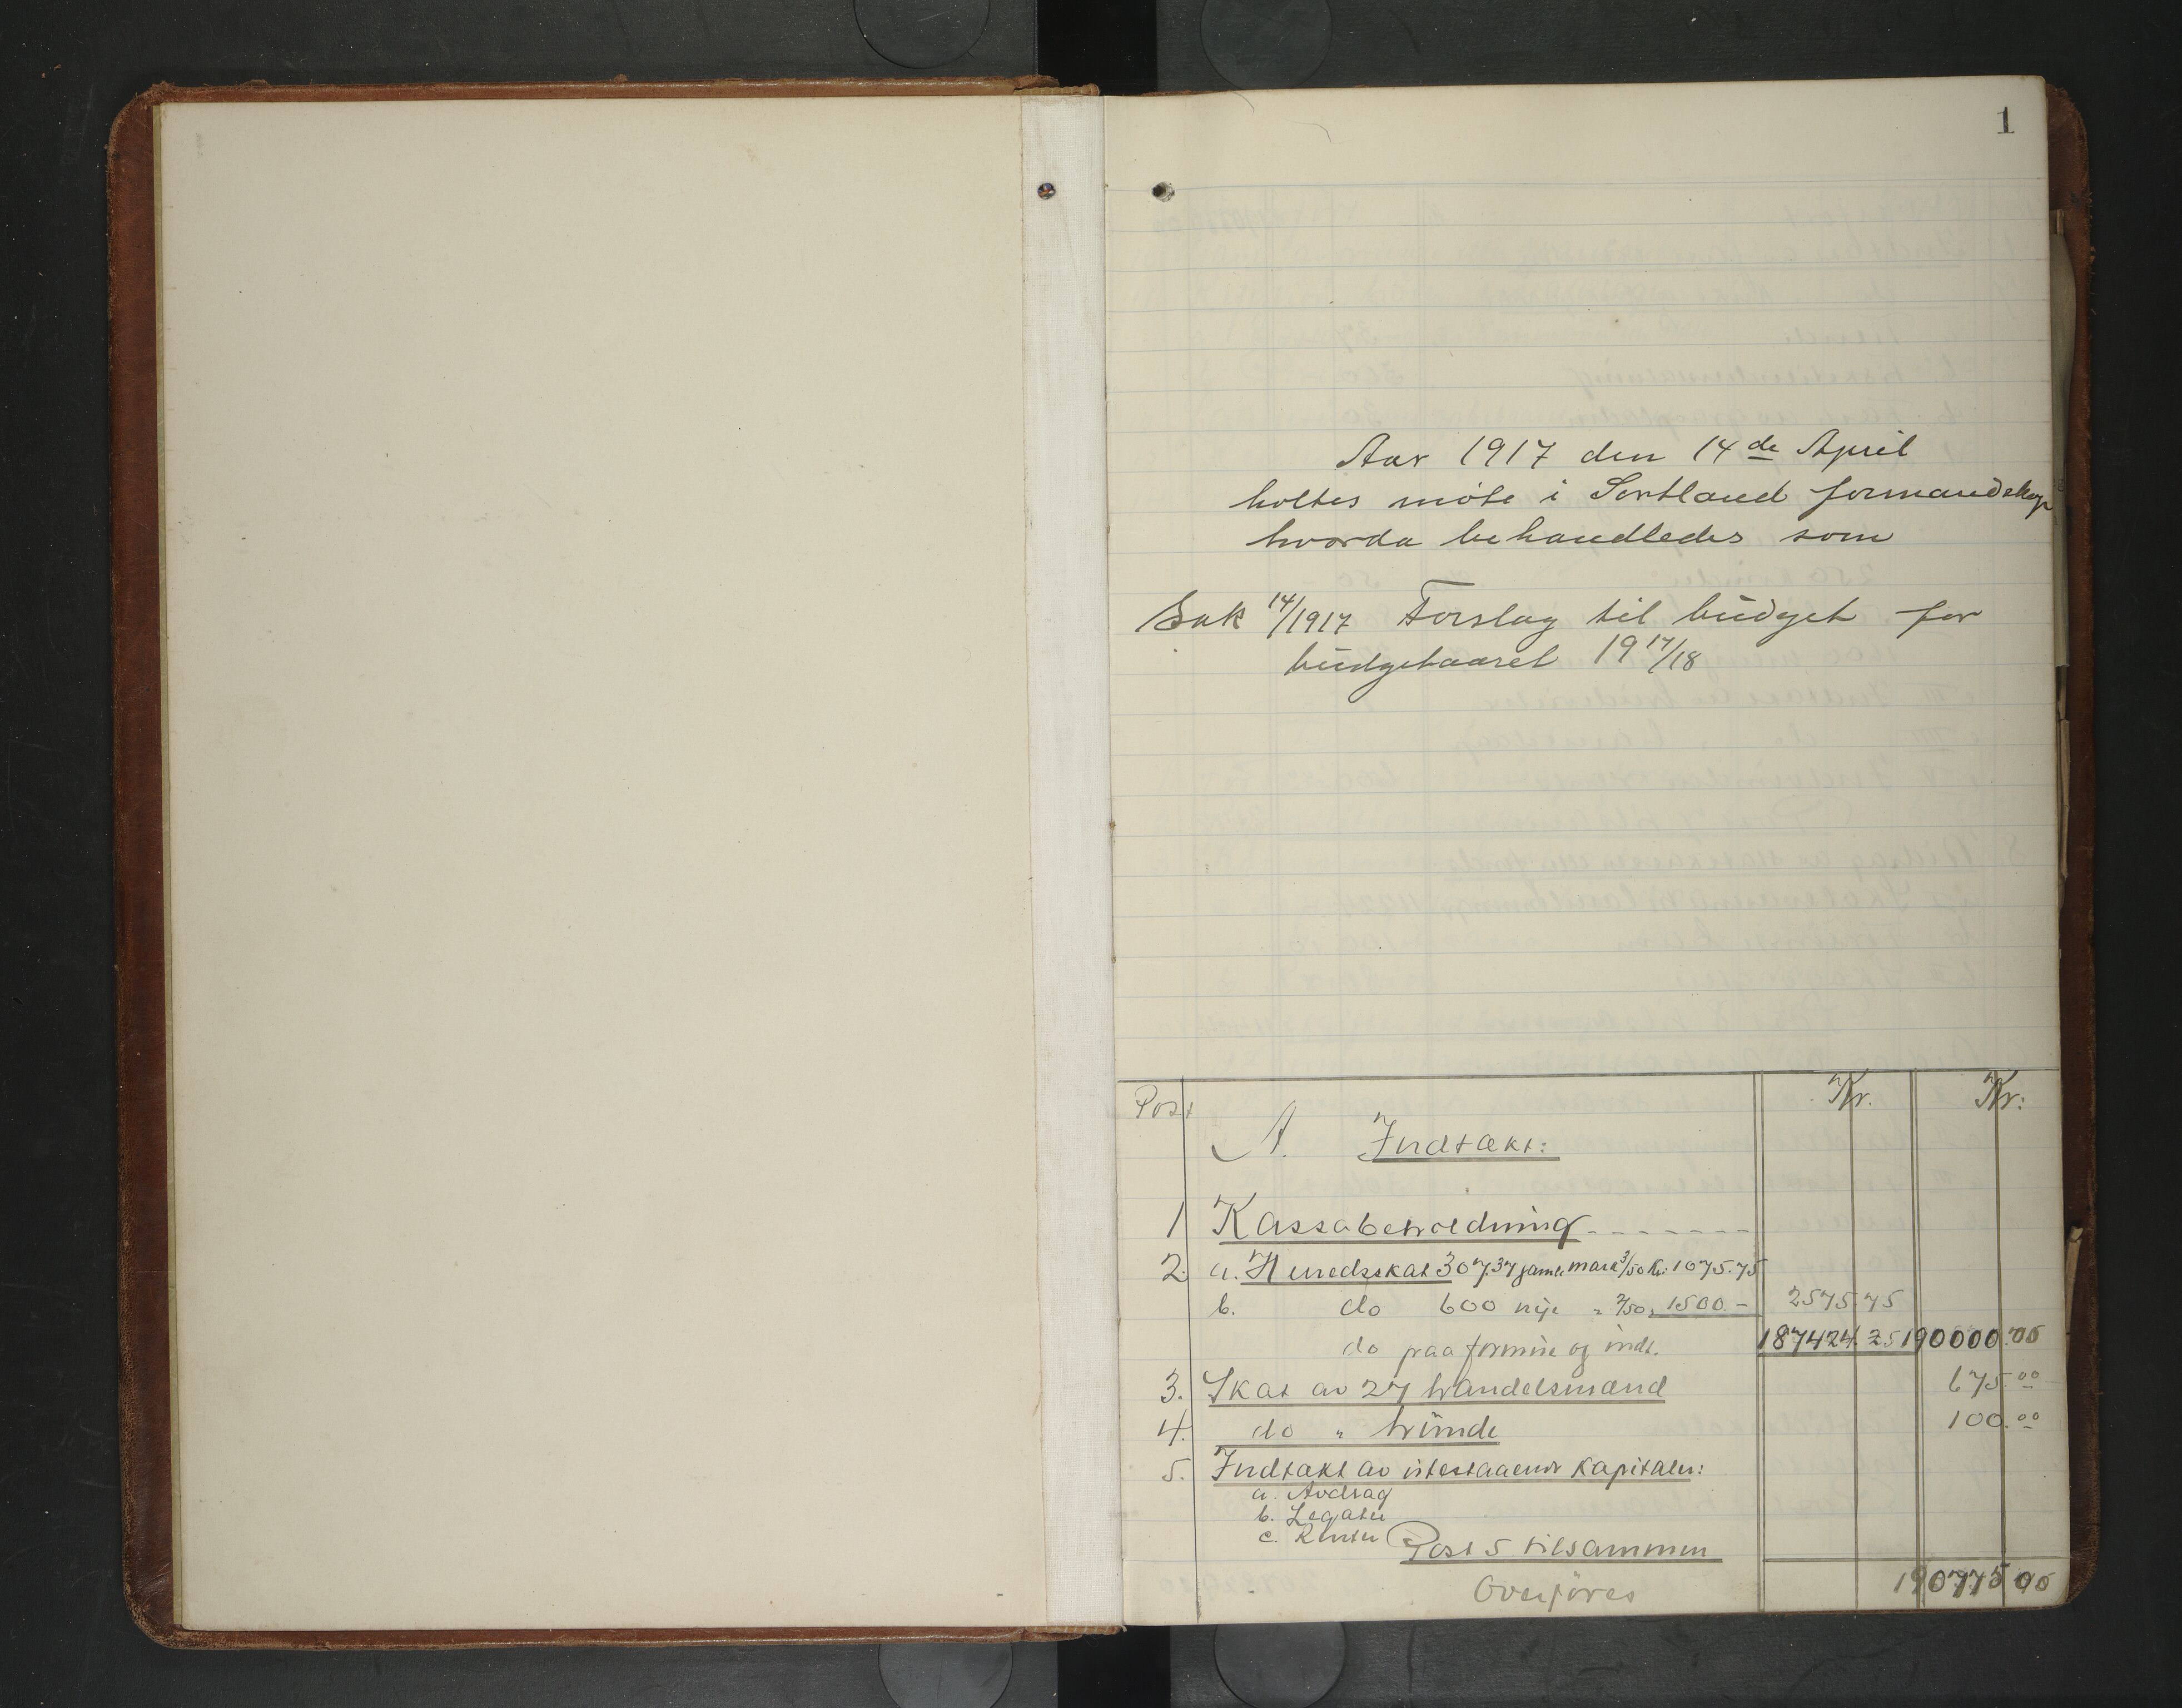 1
Aar 1917 den 14de April
holtes møte i Sortland formandskap
hvorda behandledes som
Sak 14/1917 Forslag til budget for
budgetaaret 19 17/18
Post Kr. Kr:
A. Indtækt:
1 Kassabeholdning - - - - - - -
2. a. Herredsskat 307.37 gamle mark 3/50 Kr: 1075.75
b. do 600 nye " 2/50 " 1500.- 2575.75
do paa formue og indt. 187424.25 190000.00
3. Skat av 27 handelsmænd 675.00
4. do " hunde 100.00
5. Indtækt av utestaaende Kapitaler:
a. Avdrag
b. Legater
c. Renter Post 5 tilsammen
Overføres 190775 00